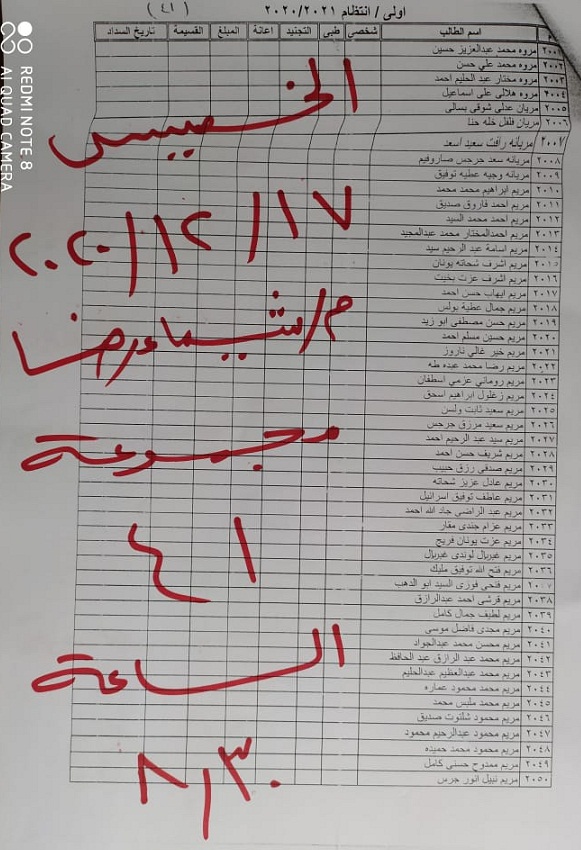 اولى / انتظام ٢٠٢٠/٢٠٢١ (٤١)
م اسم الطالب شخصي طبي التجنيد اعانة المبلغ القسيمة تاريخ السداد
٢٠٠١ مروه محمد عبدالعزيز حسين
٢٠٠٢ مروه محمد علي حسن
٢٠٠٣ مروه مختار عبد الحليم احمد
٢٠٠٤ مروه هلالى على اسماعيل
٢٠٠٥ مريان عدلي شوقى بسالى
٢٠٠٦ مريان فلفل خله حنا
٢٠٠٧ مريانه رأفت سعيد اسعد
٢٠٠٨ مريانه سعد جرجس صاروفيم
٢٠٠٩ مريانه وجيه عطيه توفيق
٢٠١٠ مريم ابراهيم محمد محمد
٢٠١١ مريم احمد فاروق صديق
٢٠١٢ مريم احمد محمد السيد
٢٠١٣ مريم احمدالمختار محمد عبدالمجيد
٢٠١٤ مريم اسامة عبد الرحيم سيد
٢٠١٥ مريم اشرف شحاته يونان
٢٠١٦ مريم اشرف عزت بخيت
٢٠١٧ مريم ايهاب حسن احمد
٢٠١٨ مريم جمال عطية بولس
٢٠١٩ مريم حسن مصطفى ابو زيد
٢٠٢٠ مريم حسين مسلم احمد
٢٠٢١ مريم خير غالي ناروز
٢٠٢٢ مريم رضا محمد عبده طه
٢٠٢٣ مريم روماني عزمي اسطفان
٢٠٢٤ مريم زغلول ابراهيم اسحق
٢٠٢٥ مريم سعيد ثابت ولسن
٢٠٢٦ مريم سعيد مرزق جرجس
٢٠٢٧ مريم سيد عبد الرحيم احمد
٢٠٢٨ مريم شريف حسن احمد
٢٠٢٩ مريم صدقى رزق حبيب
٢٠٣٠ مريم عادل عزيز شحاته
٢٠٣١ مريم عاطف توفيق اسرائيل
٢٠٣٢ مريم عبد الراضي جاد الله احمد
٢٠٣٣ مريم عزام جندى مقار
٢٠٣٤ مريم عزت يونان فريج
٢٠٣٥ مريم غبريال لوندى غبريال
٢٠٣٦ مريم فتح الله توفيق مليك
٢٠٣٧ مريم فتحى فوزى السيد ابو الدهب
٢٠٣٨ مريم قرشي احمد عبدالرازق
٢٠٣٩ مريم لطيف جمال كامل
٢٠٤٠ مريم مجدى فاضل موسى
٢٠٤١ مريم محسن محمد عبدالجواد
٢٠٤٢ مريم محمد عبد الرازق عبد الحافظ
٢٠٤٣ مريم محمد عبدالعظيم عبدالحليم
٢٠٤٤ مريم محمد محمود عماره
٢٠٤٥ مريم محمد ملبس محمد
٢٠٤٦ مريم محمود شلتوت صديق
٢٠٤٧ مريم محمود عبدالرحيم محمود
٢٠٤٨ مريم محمود محمد حميده
٢٠٤٩ مريم ممدوح حسنى كامل
٢٠٥٠ مريم نبيل انور جرس
الخميس
١٧/١٢/٢٠٢٠
م/شيماء رضا
مجموعة
٤١
الساعة
٨,٣٠
REDMI NOTE 8
AI QUAD CAMERA